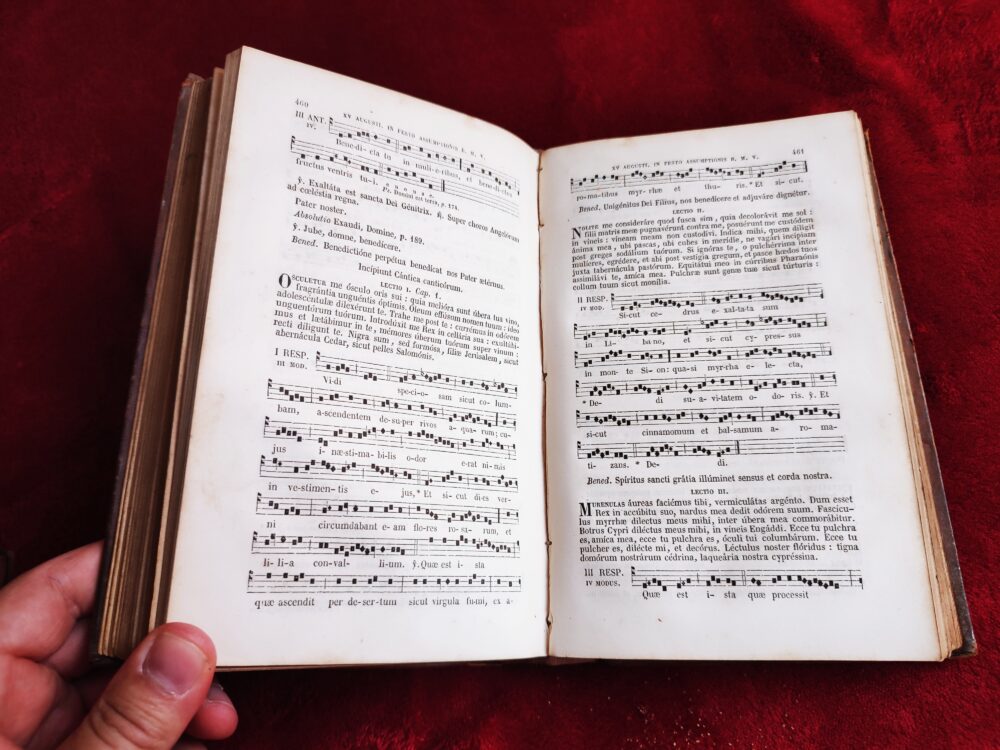 460
XV AUGUSTI. IN FESTO ASSUMPTIONIS B. M. V.
III ANT.
IV.
Bene-di- cta tu in muli-e-ribus, et bene-di-ctus
fructus ventris tu-i. e u o u a e. Ps. Domini est terra, p. 174.
℣. Exaltáta est sancta Dei Génitrix. ℟. Super choros Angelórum
ad cœléstia regna.
Pater noster.
Absolutio Exaudi, Domine, p. 189.
℣. Jube, domne, benedícere.
Bened. Benedictióne perpétua benedicat nos Pater ætérnus.
Incipiunt Cántica canticórum.
LECTIO I. Cap. 1.
OSCULETUR me ósculo oris sui : quia melióra sunt úbera tua vino,
fragrántia unguéntis óptimis. Oleum effúsum nomen tuum : ideo
adolescéntulæ dilexérunt te. Trahe me post te : currémus in odórem
unguentórum tuórum. Introdúxit me Rex in cellária sua : exultábi-
mus et lætábimur in te, mémores úberum tuórum super vinum :
recti díligunt te. Nigra sum, sed formósa, fíliæ Jerúsalem, sicut
tabernácula Cedar, sicut pelles Salomónis.
I RESP.
III MOD.
Vidi speci-o- sam sicut co-lum-
bam, a-scendentem de-su-per rivos a-qua-rum; cu-
jus i- næ-sti-ma-bi-lis o-dor e-rat ni-mis
in ve-stimen-tis e- jus,* Et si-cut di-es ver-
ni circumdabant e-am flo-res ro-sa- rum, et
li-li-a con-val- li-um. ℣. Quæ est i-sta
quæ ascendit per de-ser-tum sicut virgula fu-mi, ex a-
XV AUGUSTI. IN FESTO ASSUMPTIONIS B. M. V. 461
ro-matibus myr-rhæ et thu-ris. * Et si-cut.
Bened. Unigénitus Dei Fílius, nos benedícere et adjuváre dignétur.
LECTIO II.
NOLITE me consideráre quod fusca sim, quia decolorávit me sol :
fílii matris meæ pugnavérunt contra me, posuérunt me custódem
in víneis : víneam meam non custodívi. Indica mihi, quem díligit
ánima mea, ubi pascas, ubi cubes in merídie, ne vagári incípiam
post greges sodálium tuórum. Si ignóras te, o pulchérrima inter
mulíeres, egrédere, et abi post vestígia gregum, et pasce hœdos tuos
juxta tabernácula pastórum. Equitátui meo in cúrribus Pharaónis
assimilávi te, amíca mea. Pulchræ sunt genæ tuæ sicut túrturis :
collum tuum sicut monília.
II RESP.
IV MOD.
Sicut ce- drus e-xal-tata sum
in Li- ba-no, et si-cut cy-pres-sus
in mon-te Si-on: qua-si myr-rha e-le-cta,
* De- di su-a-vi-tatem o-do-ris. ℣. Et
si-cut cinnamomum et bal-samum a-ro-ma-
ti-zans. * De- di.
Bened. Spíritus sancti grátia illúminet sensus et corda nostra.
LECTIO III.
MURENULAS áureas faciémus tibi, vermiculátas argénto. Dum esset
Rex in accúbitu suo, nardus mea dedit odórem suum. Fascícu-
lus myrrhæ diléctus meus mihi, inter úbera mea commorábitur.
Botrus Cypri diléctus meus mihi, in víneis Engáddi. Ecce tu pulchra
es, amíca mea, ecce tu pulchra es, óculi tui columbárum. Ecce tu
pulcher es, dilécte mi, et decórus. Léctulus noster flóridus : tigna
domórum nostrárum cédrina, laqueária nostra cypréssina.
III RESP.
IV MODUS.
Quæ est i-sta quæ processit